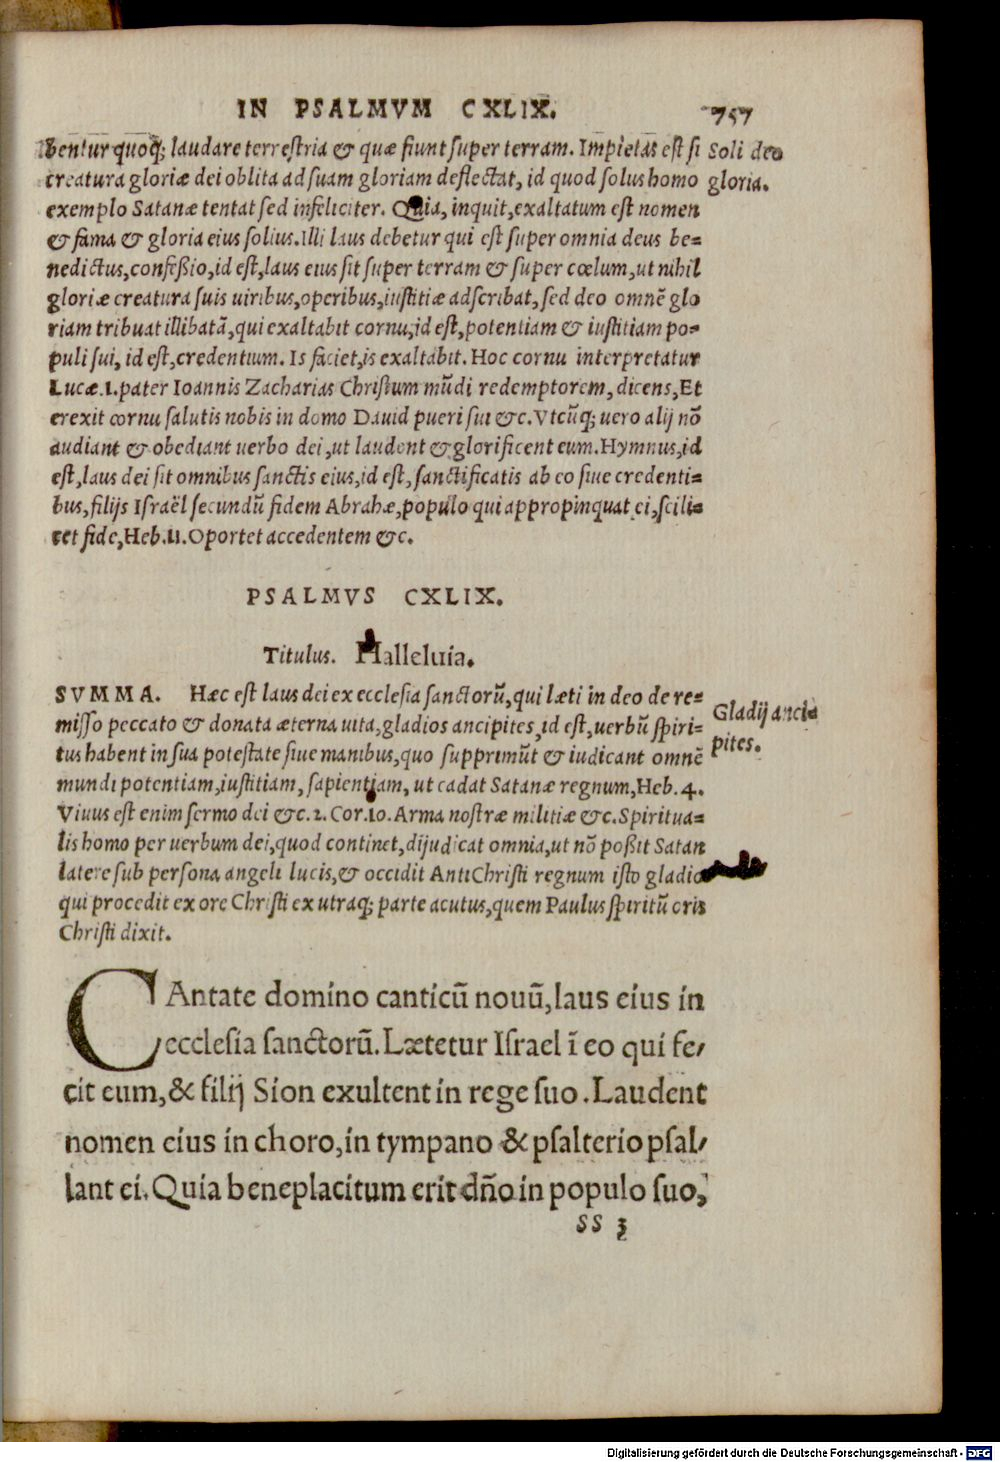 IN PSALMVM CXLIX. 757
bentur quoq; laudare terrestria & quæ fiunt super terram. Impietas est si
creatura gloriæ dei oblita ad suam gloriam deflectat, id quod solus homo
exemplo Satanæ tentat sed infeliciter. Quia, inquit, exaltatum est nomen
& fama & gloria eius solius. Illi laus debetur qui est super omnia deus be=
nedictus, confeßio, id est, laus eius sit super terram & super cœlum, ut nihil
gloriæ creatura suis uiribus, operibus, iustitiæ adscribat, sed deo omnē glo
riam tribuat illibatā, qui exaltabit cornu, id est, potentiam & iustitiam po=
puli sui, id est, credentium. Is faciet, is exaltabit. Hoc cornu interpretatur
Lucæ. 1. pater Ioannis Zacharias Christum mūdi redemptorem, dicens, Et
erexit cornu salutis nobis in domo Dauid pueri sui &c. Vtcūq; uero alij nō
audiant & obediant uerbo dei, ut laudent & glorificent eum. Hymnus, id
est, laus dei sit omnibus sanctis eius, id est, sanctificatis ab eo siue credenti=
bus, filijs Israël secundū fidem Abrahæ, populo qui appropinquat ei, scili=
cet fide, Heb. 11. Oportet accedentem &c.
Soli deo
gloria.
PSALMVS CXLIX.
Titulus. Halleluia.
SVMMA. Hæc est laus dei ex ecclesia sanctorū, qui læti in deo de re=
misso peccato & donata æterna uita, gladios ancipites, id est, uerbū spiri=
tus habent in sua potestate siue manibus, quo supprimūt & iudicant omnē
mundi potentiam, iustitiam, sapientiam, ut cadat Satanæ regnum, Heb. 4.
Viuus est enim sermo dei &c. 2. Cor. 10. Arma nostræ militiæ &c. Spiritua=
lis homo per uerbum dei, quod continet, dijudicat omnia, ut nō poßit Satan
latere sub persona angeli lucis, & occidit AntiChristi regnum isto gladio
qui procedit ex ore Christi ex utraq; parte acutus, quem Paulus spiritū oris
Christi dixit.
Gladij anci=
pites.
CAntate domino canticū nouū, laus eius in
ecclesia sanctorū. Lætetur Israel ī eo qui fe/
cit eum, & filij Sion exultent in rege suo. Laudent
nomen eius in choro, in tympano & psalterio psal/
lant ei. Quia beneplacitum erit dño in populo suo,
SS 3
Digitalisierung gefördert durch die Deutsche Forschungsgemeinschaft - DFG